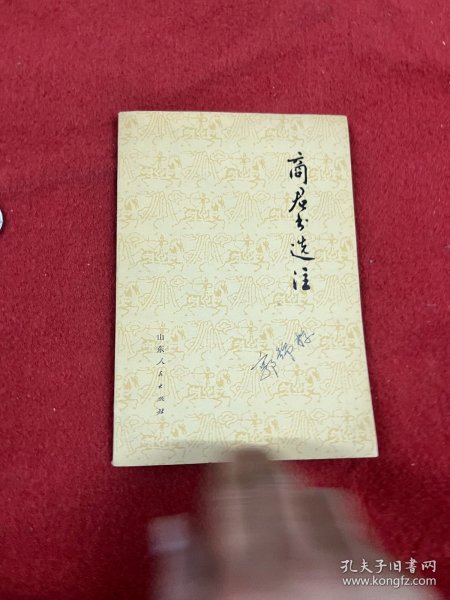 商君书选注
山东人民出版社
孔夫子旧书网
www.kongfz.com